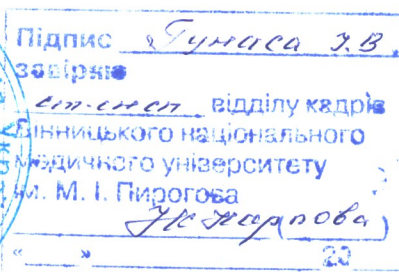 Підпис Гунаса І.В.
завіряю
ст. інсп відділу кадрів
Вінницького національного
медичного університету
ім. М. І. Пирогова
Карпова )
« » 20